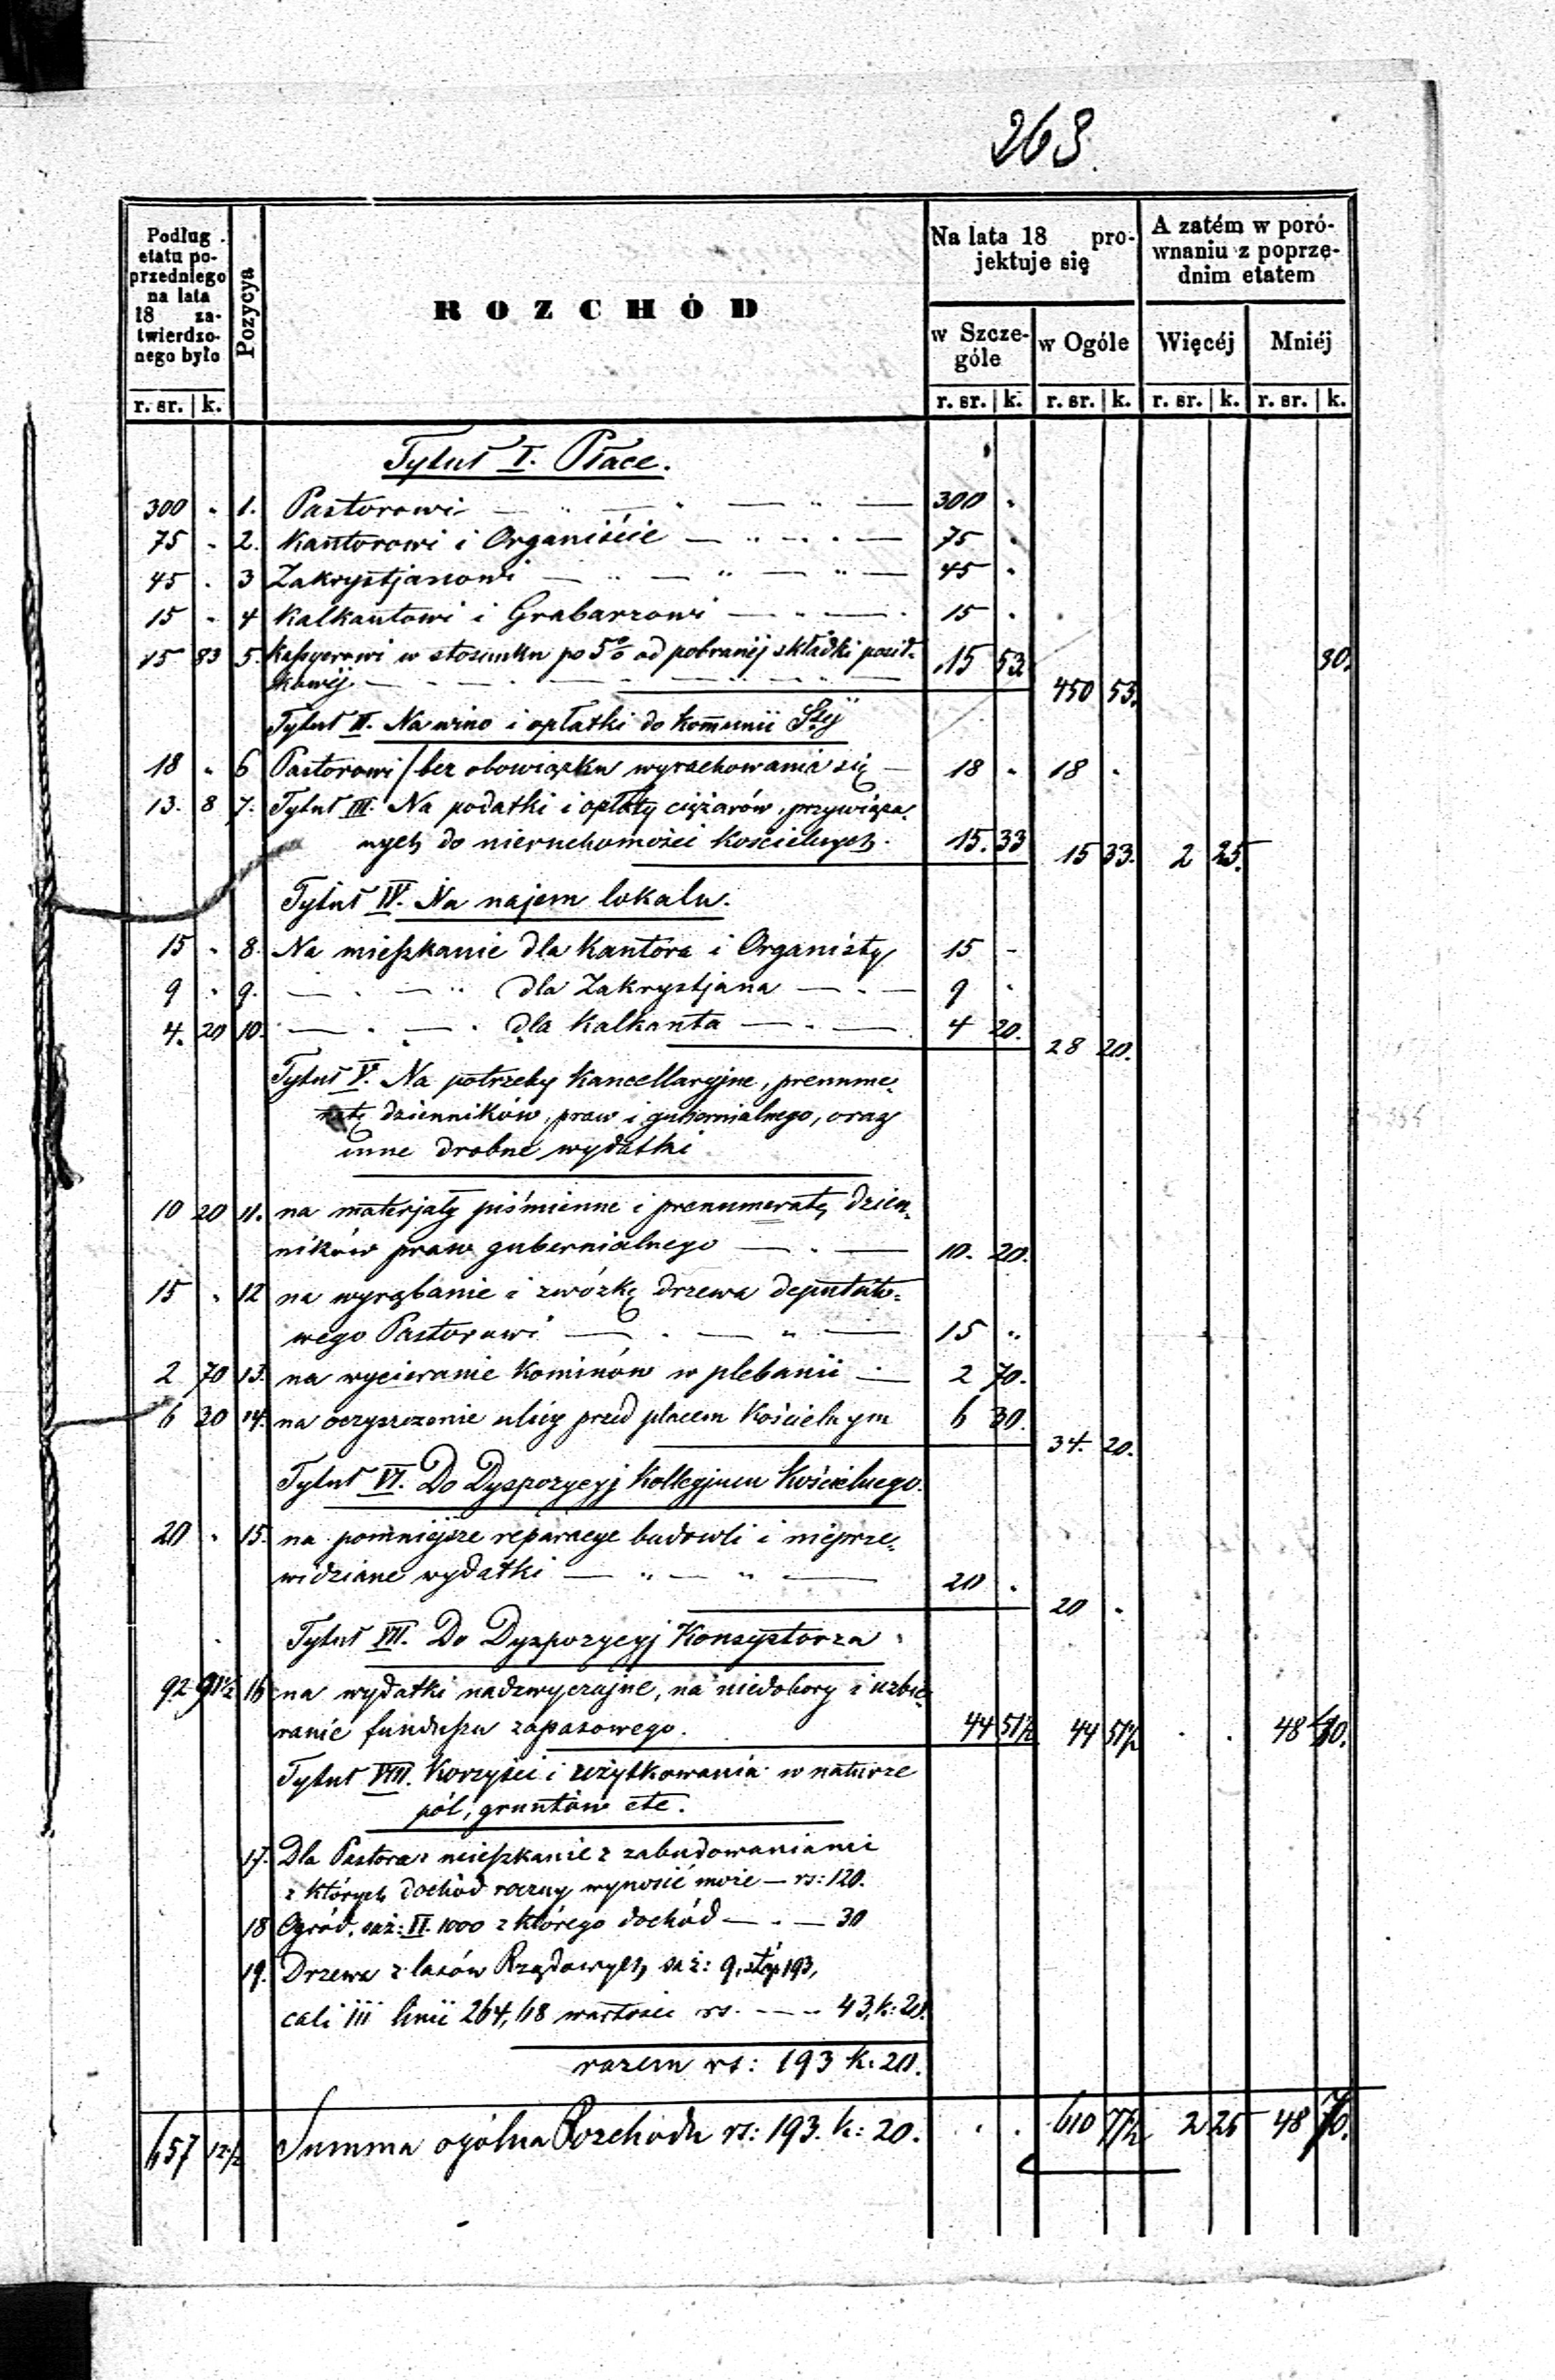 263.
Podług etatu poprzedniego na lata 18 zatwierdzonego było
Pozycya
ROZCHÓD
Na lata 18 projektuje się
A zatém w porównaniu z poprzednim etatem
w Szczególe
w Ogóle
Więcéj
Mniéj
r. sr. k.
r. sr. k. r. sr. k. r. sr. k. r. sr. k.
Tytuł I. Płace.
300 " 1. Pastorowi — " — " — " — 300 "
75 " 2. Kantorowi i Organiście — " — " — 75 "
45 " 3 Zakrystjanowi — " — " — " — 45 "
15 " 4 Kalkantowi i Grabarzowi — " — 15 "
15 83 5. Kaßyerowi w stosunku po 5% od pobranéj składki posił- 15 53 30.
kowéj — 450 53.
Tytuł II. Na wino i opłatki do Kom̄unii Stéj
18 " 6 Pastorowi / bez obowiązku wyrachowania się — 18 " 18 "
13. 8 7. Tytuł III. Na podatki i opłaty ciężarów, przywiąza-
nych do nieruchomości Kościelnych. 15. 33 15 33. 2 25.
Tytuł IV. Na najem lokalu.
15 " 8. Na mießzkanie dla Kantora i Organisty 15 -
9 " 9. — " — " dla Zakrystjana — " — 9 "
4. 20 10. — " — " dla Kalkanta — " — 4 20.
28 20.
Tytuł V. Na potrzeby Kancellaryjne, prenume-
ratę dzienników, praw i gubernialnego, oraz
inne drobne wydatki
10 20 11. na materjały piśmienne i prenumeratę dzien-
ników praw gubernialnego — " — 10. 20.
15 " 12 na wyrąbanie i zwózkę drzewa deputato-
wego Pastorowi — " — " — 15 "
2 70 13. na wycieranie Kominów w plebanii — 2 70.
6 30 14. na oczyszczenie ulicy przed placem Kościelnym 6 30.
34. 20.
Tytuł VI. Do Dyspozycyj Kollegjum Kościelnego.
20 " 15. na pomniejsze reparacye budowli i nieprze-
widziane wydatki — " — " — 20 "
20 "
Tytuł VII. Do Dyspozycyj Konsystorza
92 91½ 16 na wydatki nadzwyczajne, na niedobory i uzbie-
ranie fundußzu zapasowego. 44 51½ 44 51½ " " 48 40.
Tytuł VIII. Korzyści i użytkowania w naturze
pól, gruntów etc.
17. Dla Pastora: mießzkanie z zabudowaniami
z których dochód roczny wynosić może — rs: 120.
18 Ogród, saż: □ 1000 z którego dochód — " — 30
19. Drzewa z lasów Rządowych, saż: 9, stóp 193,
cali III linii 264,68 wartości rs. — " — 43, k: 20.
razem rs: 193 k: 20.
657 12½ Summa ogólna Rozchodu rs: 193. k: 20. " " 610 97½ 2 25 48 70.